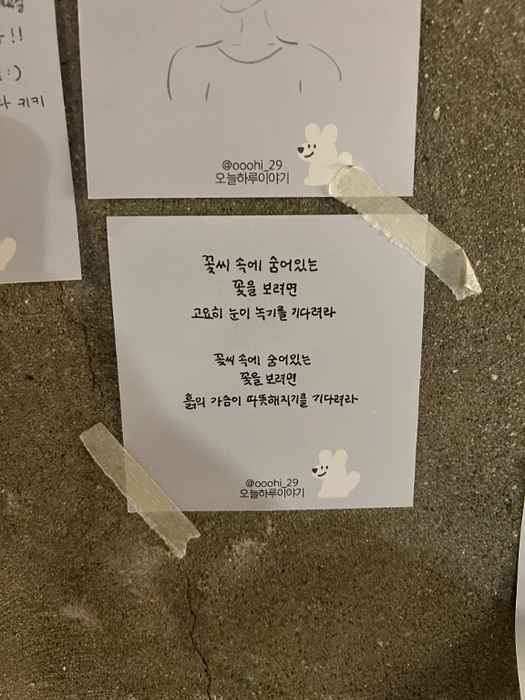 !!
:)
키키
@ooohi_29
오늘하루이야기
꽃씨 속에 숨어있는
꽃을 보려면
고요히 눈이 녹기를 기다려라
꽃씨 속에 숨어있는
꽃을 보려면
흙의 가슴이 따뜻해지기를 기다려라
@ooohi_29
오늘하루이야기